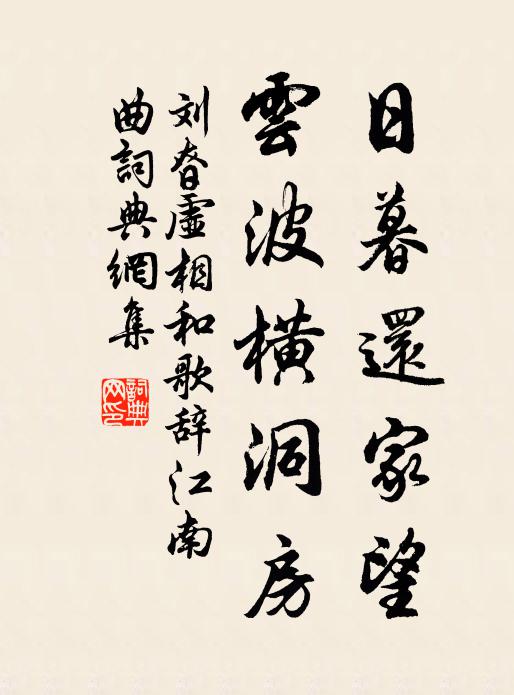 日暮還家望
雲波橫洞房
刘眘虛相和歌辞江南
曲詞典網集
詞典网印